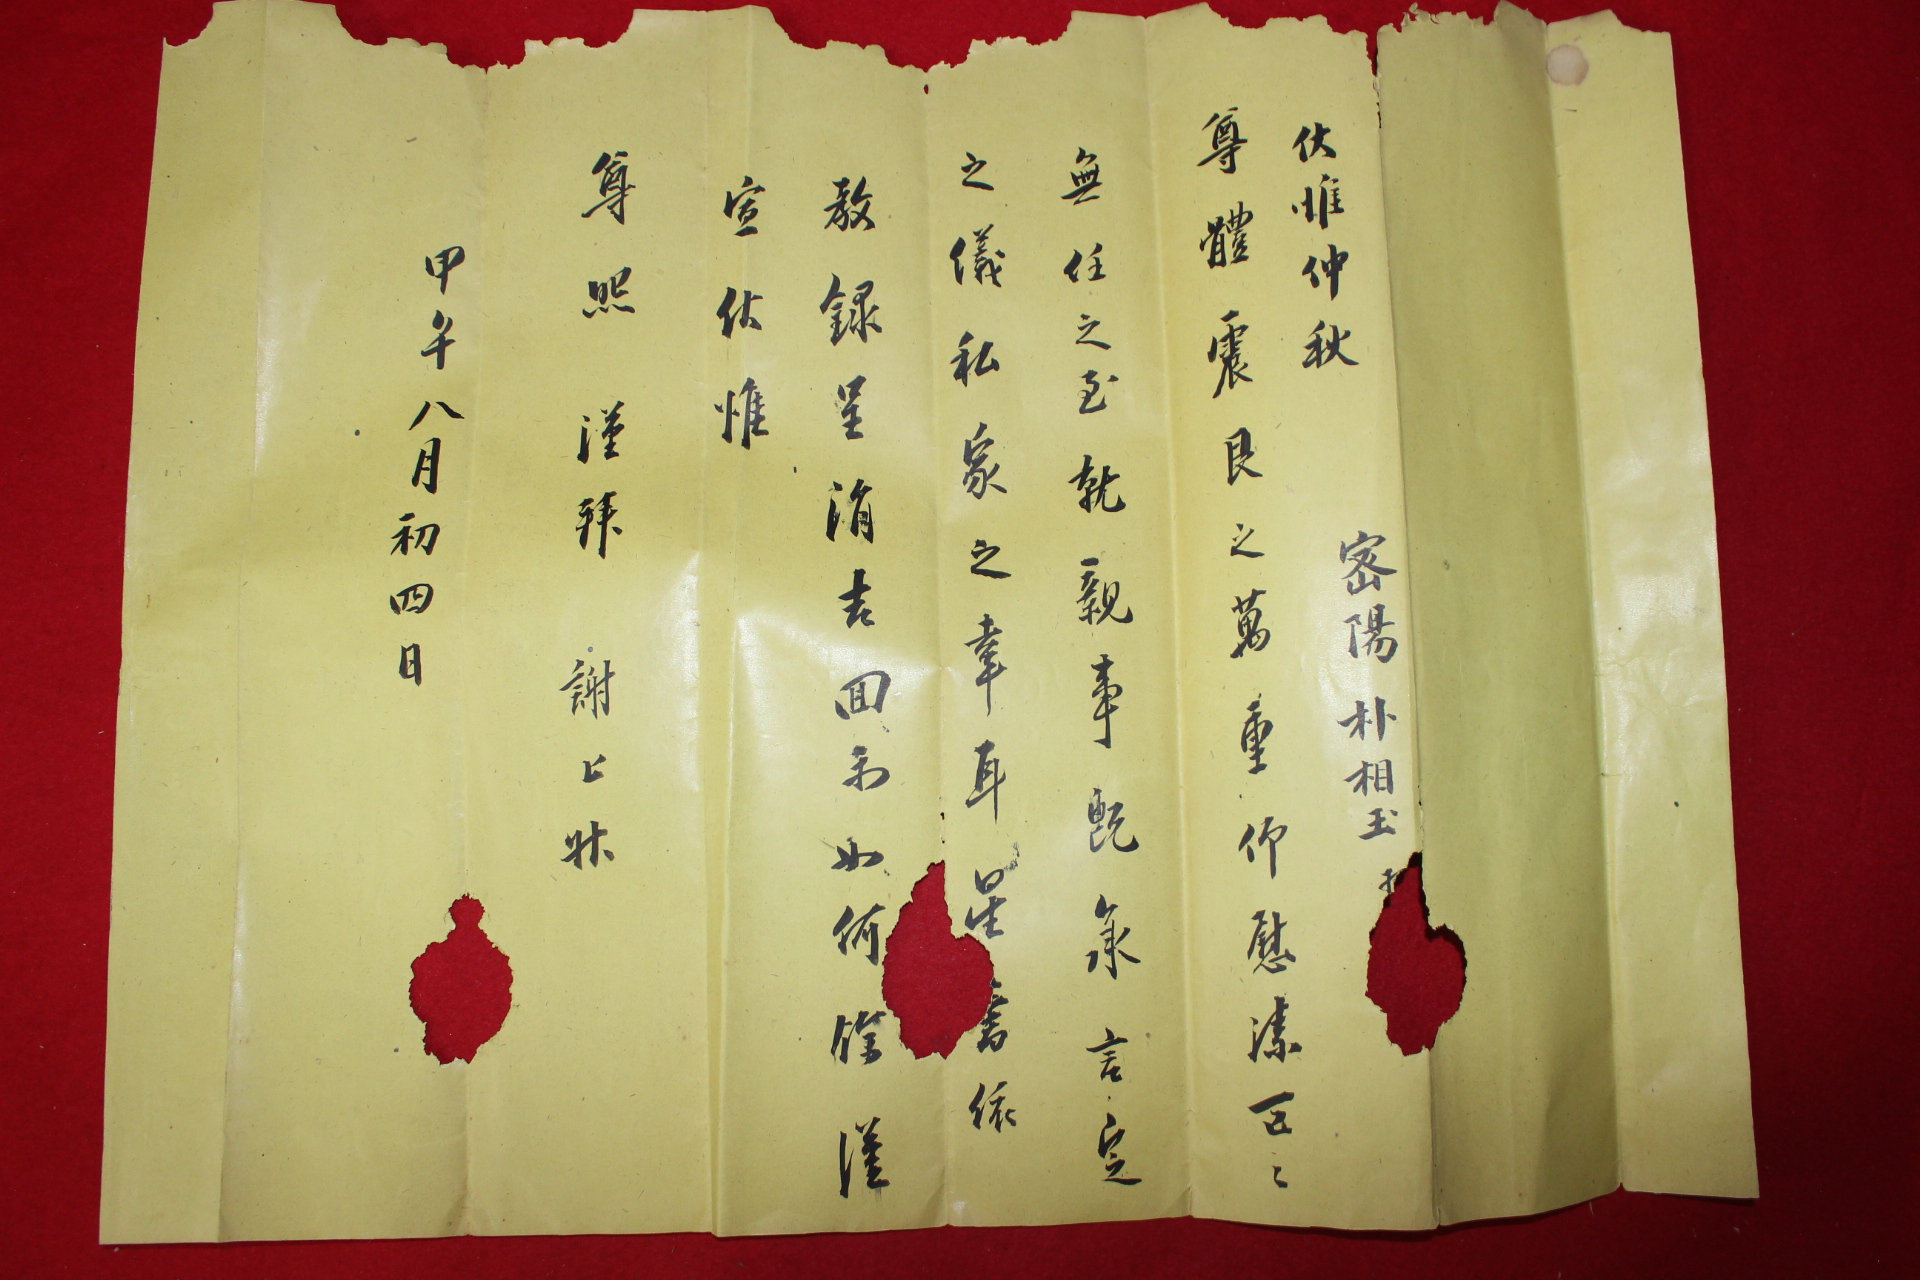 密陽 朴相玉
伏惟仲秋
尊體震艮之萬重仰慰溸區〻
無任之至就親事旣承言定
之儀私家之幸耳星書依
敎錄呈涓吉回示如何餘謹
宣伏惟
尊照 謹拜 謝上狀
甲午八月初四日